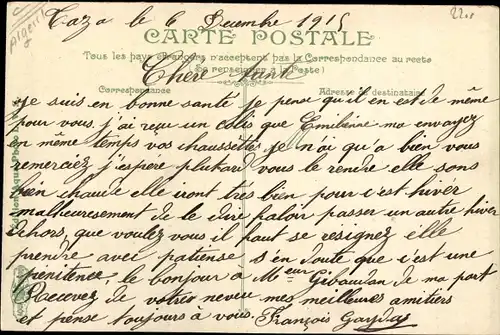 Taza le 6 Decembre 1915
Algerie
22.
CARTE POSTALE
Tous les pays étrangers n'acceptent pas la Correspondance au recto
(Se renseigner à la Poste)
Chère tante
Correspondance
Adresse du destinataire
Je suis en bonne santé je pense qu'il en est de même
pour vous, j'ai reçu un colis que Emilienne ma envoyez
en même temps vos chaussettes je n'ai qu'a bien vous
remerciez j'espére plutard vous le rendre elle sons
bien chaude elle iront très bien pour s'est hiver
malheuresement de le dire faloir passer un autre hiver
dehors, que voulez vous il haut se resignez elle
prendre avec patiense s'en doute que c'est une
penitence, le bonjour a Meur Gibaudan de ma part
Recevez de votre neveu mes meilleures amitiers
et pense toujours a vous. François